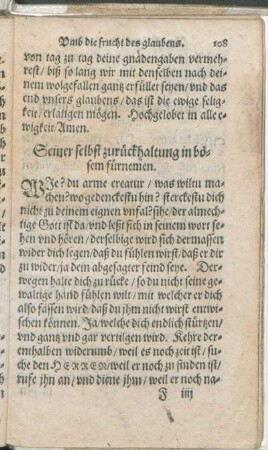 Vmb die frucht des glaubens. 108
von tag zu tag deine gnadengaben vermeh-
rest / biß so lang wir mit denselben nach dei-
nem wolgefallen gantz erfüllet seyen / vnd das
end vnsers glaubens / das ist die ewige selig-
keit / erlangen mögen. Hochgelobet in alle e-
wigkeit / Amen.
Seiner selbst zurückhaltung in bö-
sem fürnemen.
WJe? du arme creatur / was wiltu ma-
chen? wo gedenckestu hin? sterckestu dich
nicht zu deinem eignen vnfal? sihe / der almech-
tige Gott ist da / vnd leßt sich in seinem wort se-
hen vnd hören / derselbige wird sich dermassen
wider dich legen / daß du fühlen wirst / daß er dir
zu wider / ja dein abgesagter feind seye. Der-
wegen halte dich zu rücke / so du nicht seine ge-
waltige hand fühlen wilt / mit welcher er dich
also fassen wird / daß du jhm nicht wirst entwi-
schen können. Ja / welche dich endlich stürtzen /
vnd gantz vnd gar vertilgen wird. Kehre der-
enthalben widerumb / weil es noch zeit ist / su-
che den HERREN / weil er noch zu finden ist /
rufe jhn an / vnd diene jhm / weil er noch na-
F iiij